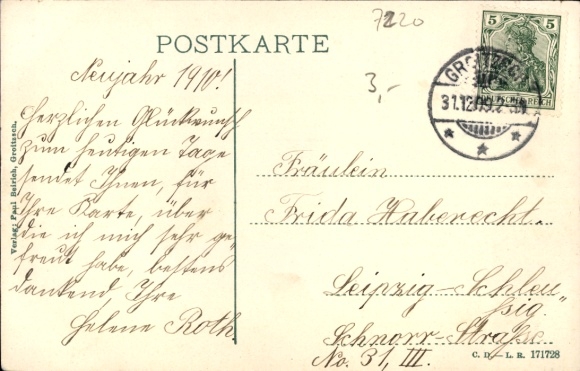 7220
POSTKARTE
3,-
5 5
DEUTSCHES REICH
GROITZSCH
31.12.09.
Neujahr 1910!
Herzlichen Glückwunsch
zum heutigen Tage
sendet Ihnen, für
Ihre Karte, über
die ich mich sehr ge-
freut habe, bestens
dankend, Ihre
Helene Roth.
Fräulein
Frida Haberecht.
Leipzig-Schleu-
ßig.
Schnorr-Straße
No. 31, III.
Verlag: Paul Beirich, Groitzsch.
C. D. L. R. 171728